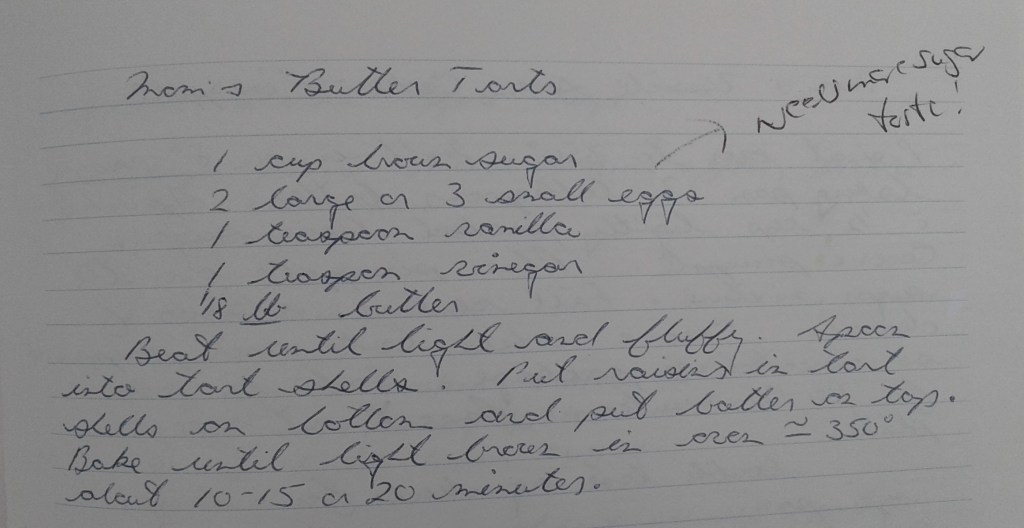 Mom's Butter Tarts
Need more sugar
taste!
1 cup brown sugar
2 large or 3 small eggs
1 teaspoon vanilla
1 teaspoon vinegar
1/8 lb butter
Beat until light and fluffy. Spoon
into tart shells. Put raisins in tart
shells on bottom and put batter on top.
Bake until light brown in oven ≃ 350°
about 10-15 or 20 minutes.